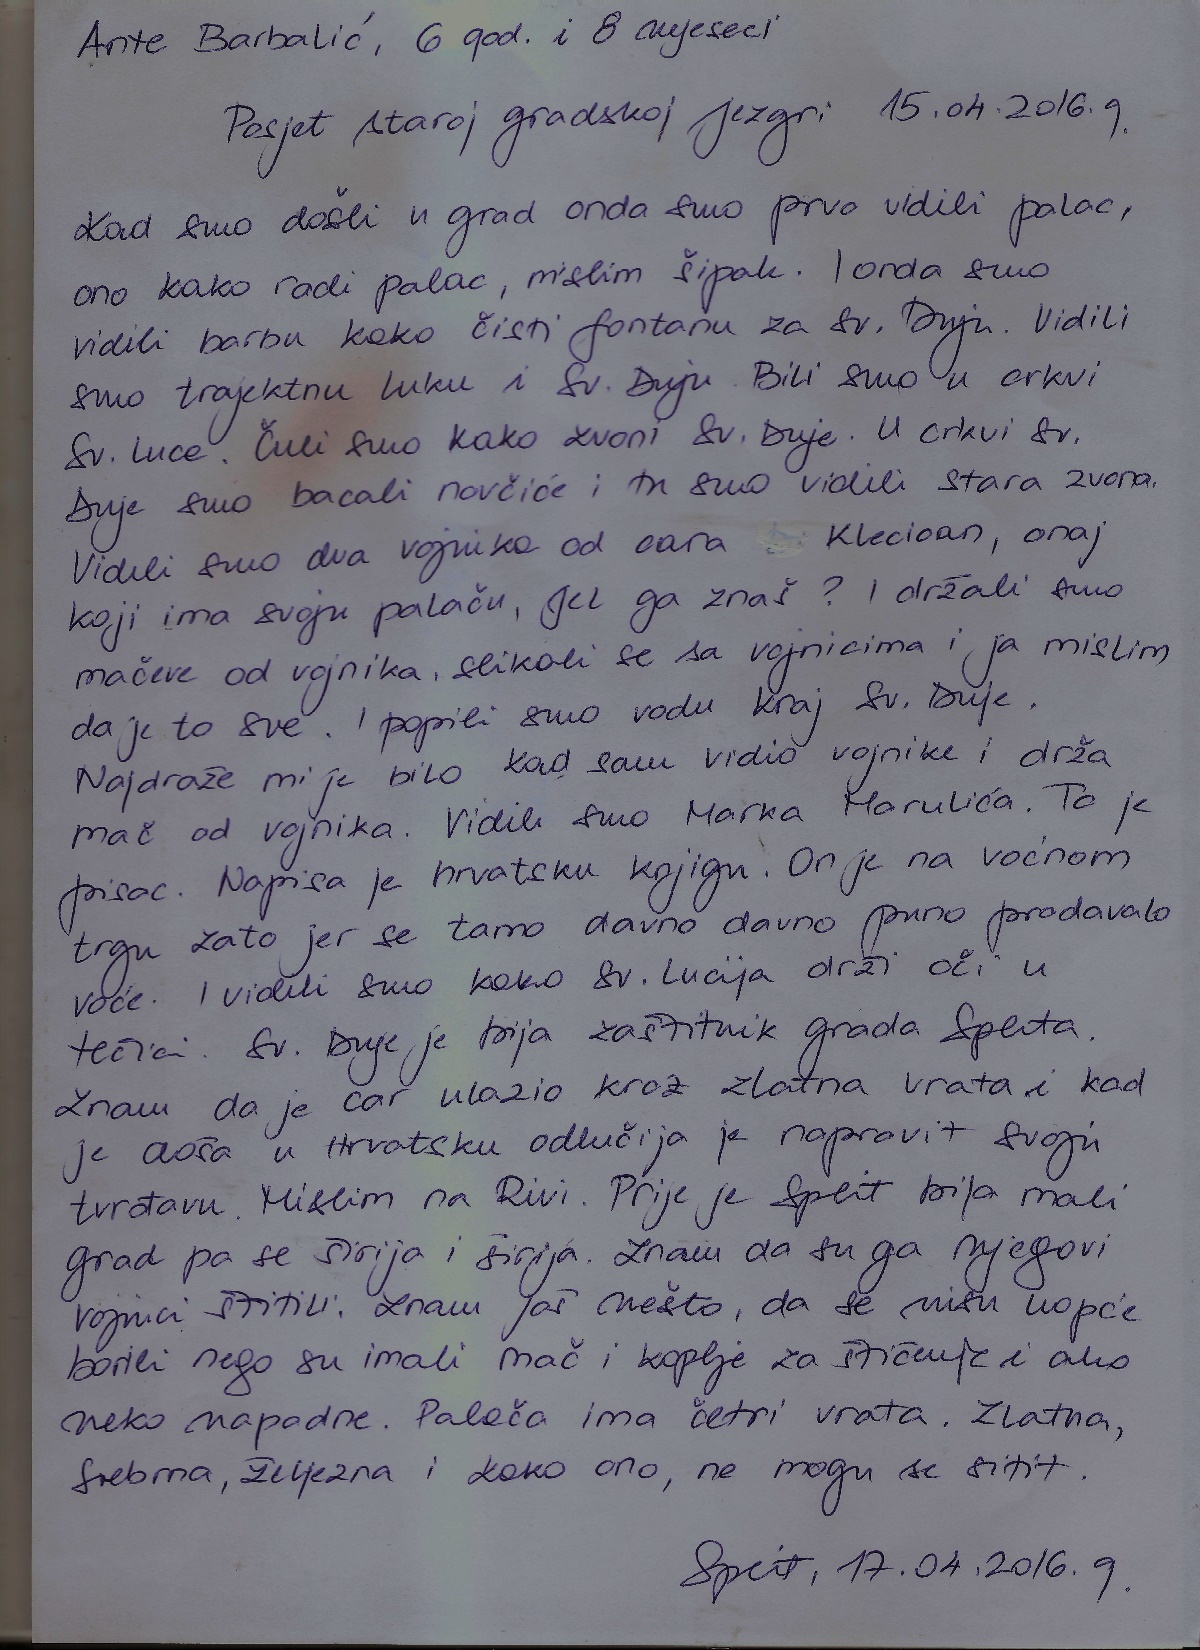 Ante Barbalić, 6 god. i 8 mjeseci
Posjet staroj gradskoj jezgri 15.04.2016.g.
Kad smo došli u grad onda smo prvo vidili palac,
ono kako radi palac, mislim šipak. I onda smo
vidili barbu kako čisti fontanu za Sv. Duju. Vidili
smo trajektnu luku i Sv. Duju. Bili smo u crkvi
Sv. Luce. Čuli smo kako zvoni Sv. Duje. U crkvi Sv.
Duje smo bacali novčiće i tu smo vidili stara zvona.
Vidili smo dva vojnika od cara Klecioan, onaj
koji ima svoju palaču, jel ga znaš? I držali smo
mačeve od vojnika, slikali se sa vojnicima i ja mislim
da je to sve. I popili smo vodu kraj Sv. Duje.
Najdraže mi je bilo kad sam vidio vojnike i drža
mač od vojnika. Vidili smo Marka Marulića. To je
pisac. Napisa je hrvatsku knjigu. On je na voćnom
trgu zato jer se tamo davno davno puno prodavalo
voće. I vidili smo kako Sv. Lucija drži oči u
tećici. Sv. Duje je bija zaštitnik grada Splita.
Znam da je car ulazio kroz zlatna vrata i kad
je doša u Hrvatsku odlučija je napravit svoju
tvrđavu. Mislim na Rivi. Prije je Split bija mali
grad pa se širija i širija. Znam da su ga njegovi
vojnici štitili. Znam još nešto, da se nisu uopće
borili nego su imali mač i koplje za štićenje i ako
neko napadne. Palača ima četri vrata. Zlatna,
srebrna, željezna i kako ono, ne mogu se sitit.
Split, 17.04.2016.g.